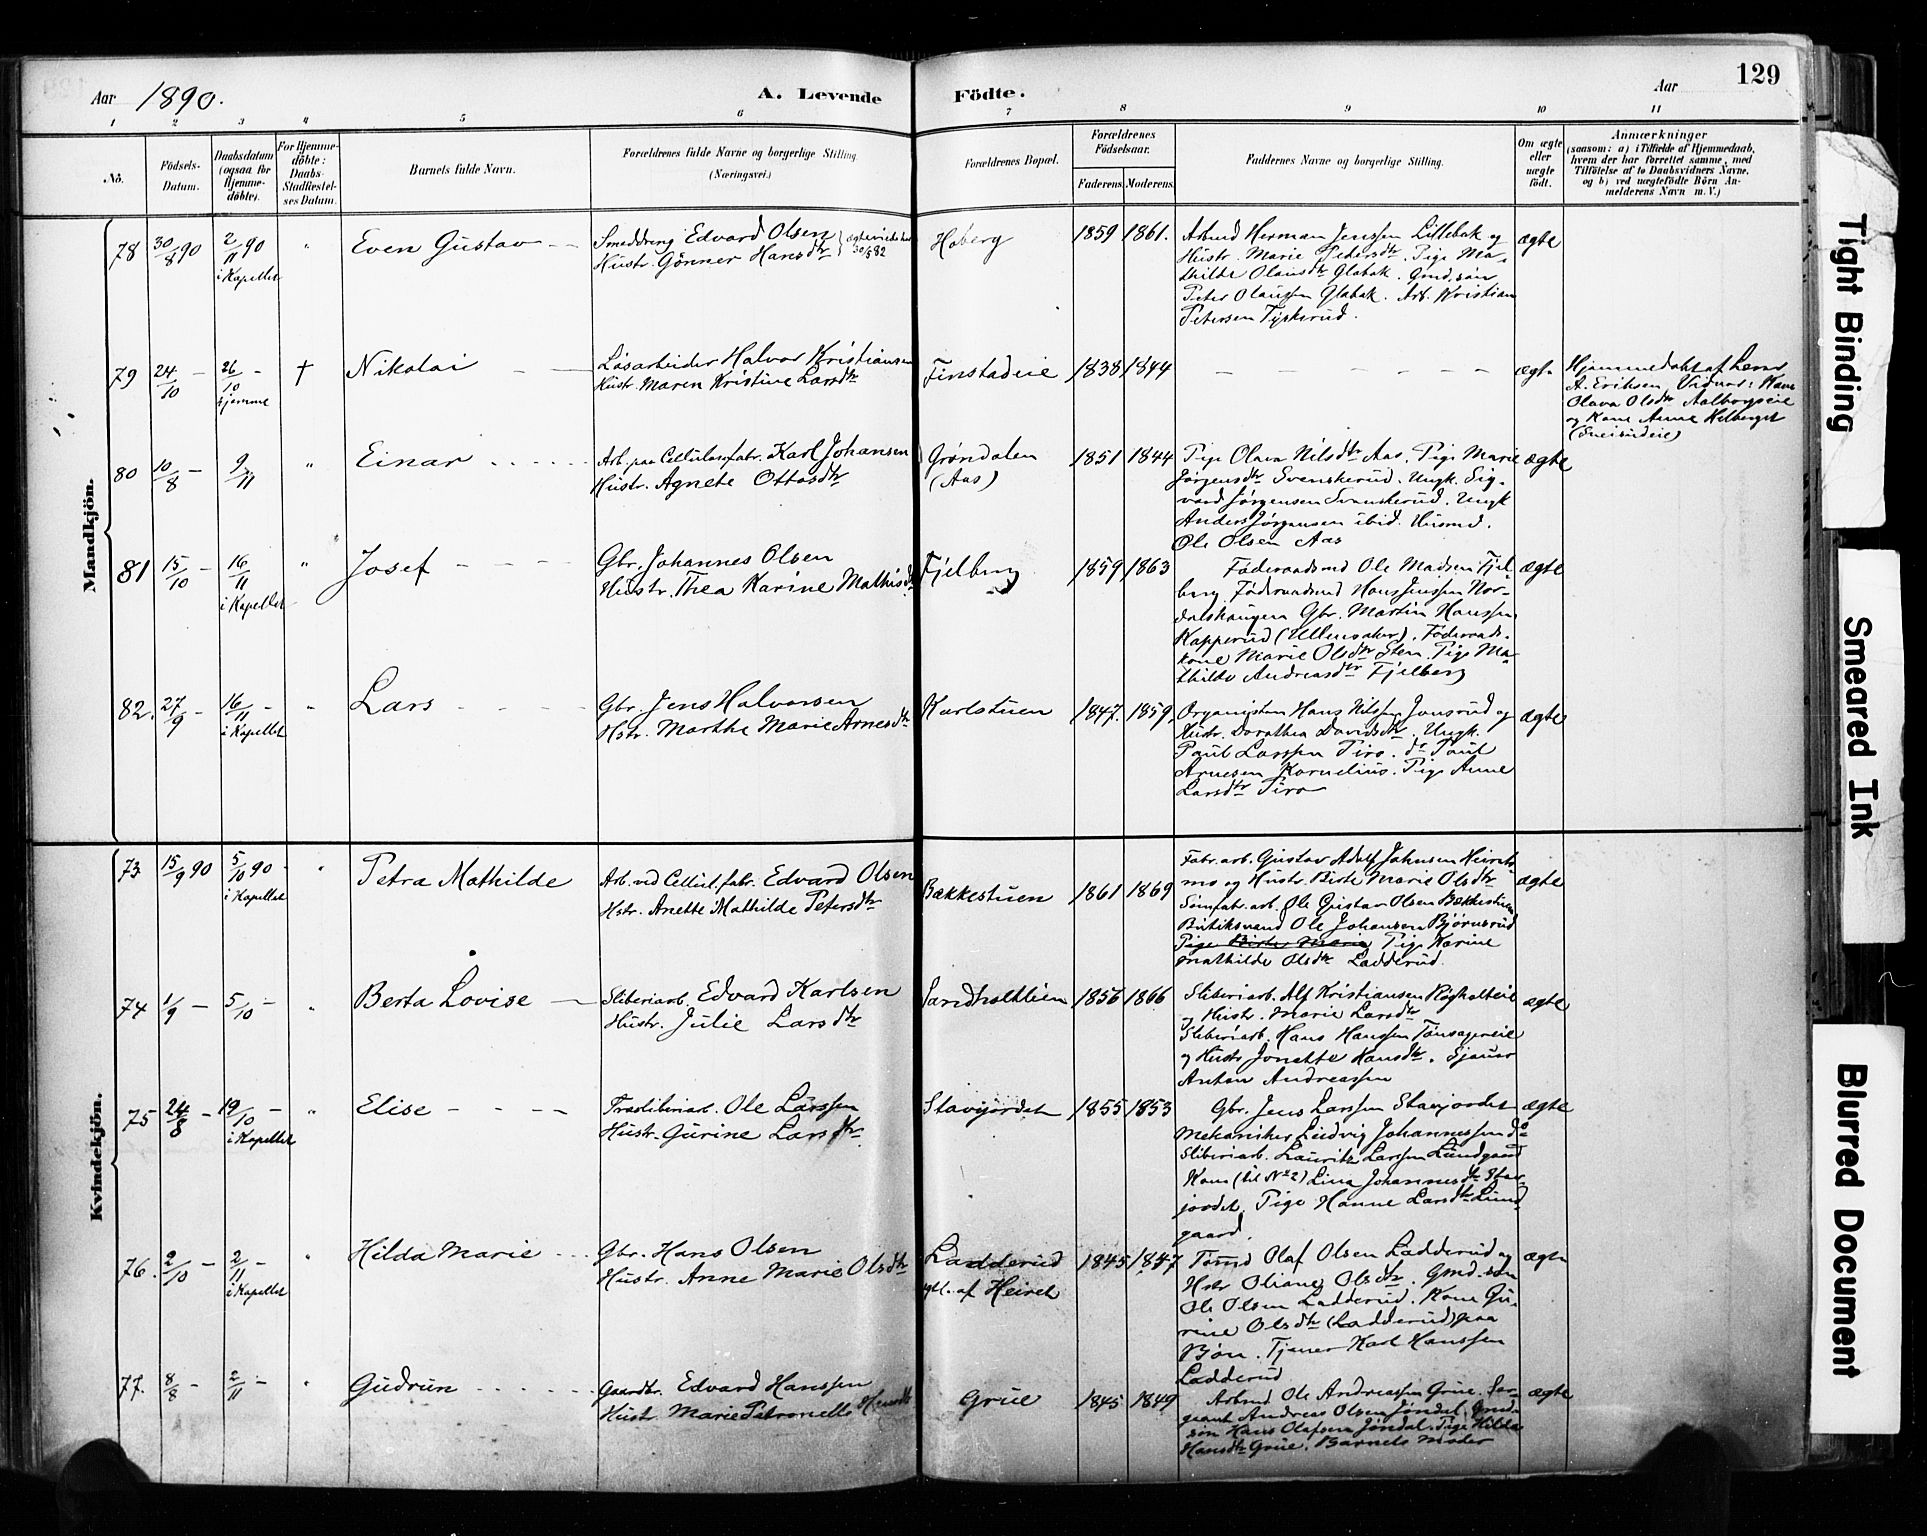 129
Aar 1890.
A. Levende Födte.
Aar
1 2 3 4 5 6 7 8 9 10 11
No.
Födsels-
Datum.
Daabsdatum
(ogsaa for
Hjemme-
döbte).
For Hjemme-
döbte:
Daabs-
Stadfæstel-
ses Datum.
Barnets fulde Navn.
Forældrenes fulde Navne og borgerlige Stilling.
(Næringsvei.)
Forældrenes Bopæl.
Forældrenes
Födselsaar.
Faderens. Moderens.
Faddernes Navne og borgerlige Stilling.
Om ægte
eller
uægte
født.
Anmærkninger
(saasom: a) i Tilfælde af Hjemmedaab,
hvem der har forrettet samme, med
Tilföielse af to Daabsvidners Navne,
og b) ved uægtefödte Börn An-
melderens Navn m. V.)
Mandkjön.
78 30/8 90 2/11 90 " Even Gustav
i Kapellet
Smeddreng Edvard Olsen
Hustr. Gönner Hansdtr
30/5 82
Hoberg 1859 1861.
Arbmd Herman Jenssen Lillebak og
Hustr. Marie Pedersdtr. Pige Ma-
thilde Olausdtr Glabak. Gmd.søn
Peter Olaussen Glabak. Arb. Kristian
Petersen Tyskerud.
ægte
79 24/10 - 26/10 - † Nikolai
hjemme
Løsarbeider Halvor Kristiansen
Hustr. Maren Kristine Larsdtr
Finstadeie 1838 1844 - - - - ægte
Hjemmedøbt af Lens
A. Eriksen. Vidner: Kone
Olava Olsdtr Aalborgseie
og Kone Anne Helberget
80 10/8 - 9/11 " Einar
Arb. paa Cellulosefabr. Karl Johansen
Hustr. Agnete Ottosdtr
Grøndalen
(Aas)
1851 1844
Pige Olava Nilsdtr Aas. Pige Marie
Jørgensdtr Svenskerud. Ungk. Sig-
vard Jørgensen Svenskerud. Ungk
Anders Jørgensen ibid. Husmd.
Ole Olsen Aas
ægte
81 15/10 - 16/11 " Josef
i Kapellet
Gbr. Johannes Olsen
Hustr. Thea Karine Mathisdtr
Fjelberg 1859 1863
Føderaadsmd Ole Madsen Fjel-
berg. Føderaadsmd Hans Jenssen Nor-
dalshaugen Gbr. Martin Hanssen
Kapperud (Ullensaker). Føderaads-
kone Marie Olsdtr Sten. Pige Ma-
thilde Andreasdtr Fjelberg
ægte
82. 27/9 - 16/11 - " Lars
i Kapellet
Gbr. Jens Halvorsen
Hstr. Marthe Marie Arnesdtr
Karlstuen 1847. 1859.
Organisten Hans Nilssen Jonsrud og
Hustr. Dorothea Davidsdtr. Ungk.
Paul Larssen Piro. do Paul
Arnesen Kornelius. Pige Anne
Larsdtr Piro
ægte
Kvindekjön.
73 15/9 90 5/10 90 " Petra Mathilde
i Kapellet
Arb. ved Cellul.fabr. Edvard Olsen
Hstr. Anette Mathilde Petersdtr
Bækkestuen 1861 1869
Fabr.arb. Gustav Adolf Johnsen
mo og Hustr. Birte Marie Olsdtr
Ole Gustav Olsen Bækkestuen
Butiksmand Ole Johansen Bjørnsrud
Pige Birte Marie Pige Karine
Mathilde Olsdtr Ladderud.
ægte
74 1/9 - 5/10 - " Berta Lovise
Sliberiarb. Edvard Karlsen
Hustr. Julie Larsdtr
Sandholtlien 1856 1866
Sliberiarb. Alf Kristiansen Røgholteie
og Hustr. Marie Larsdtr
Sliberiarb. Hans Hanssen Tonsagereie
og Hustr Jonette Hansdtr. Gjæver
Anton Andreassen
ægte
75 24/8 - 19/10 - " Elise
i Kapellet
Træsliberiarb. Ole Larssen
Hustr. Gurine Larsdtr
Stavjordet 1855 1853
Gbr. Jens Larssen Stavjordet
Mekaniker Ludvig Johannessen do
Sliberiarb. Lauritz Larssen Lundgaard
Kone (til No 2) Lina Johannesdtr Stav-
jordet. Pige Hanne Larsdtr Lund-
gaard.
ægte
76. 2/10 - 2/11 - " Hilda Marie
i Kapellet
Gbr. Hans Olsen
Hustr. Anne Marie Olsdtr
Ladderud
af Heiret
1845 1847
Tømd Olaf Olsen Ladderud og
Hstr Oliane Olsdtr. Gmd.søn
Ole Olsen Ladderud. Kone Gu-
rine Olsdtr (Ladderud) paa
Bjøn. Tjener Karl Hanssen
Ladderud
ægte
77. 8/8 - 2/11 - " Gudrun
Gaardbr. Edvard Hanssen
Hustr. Marie Petronelle Hansdtr
Grue 1845 1849
Arbmd Ole Andreassen Grue. Ser-
geant Andreas Olsen Jøndal. Gmd-
søn Hans Olafsen Jøndal. Pige Hilda
Hansdtr Grue. Barnets Moder
ægte
Tight Binding
Smeared Ink
Blurred Document